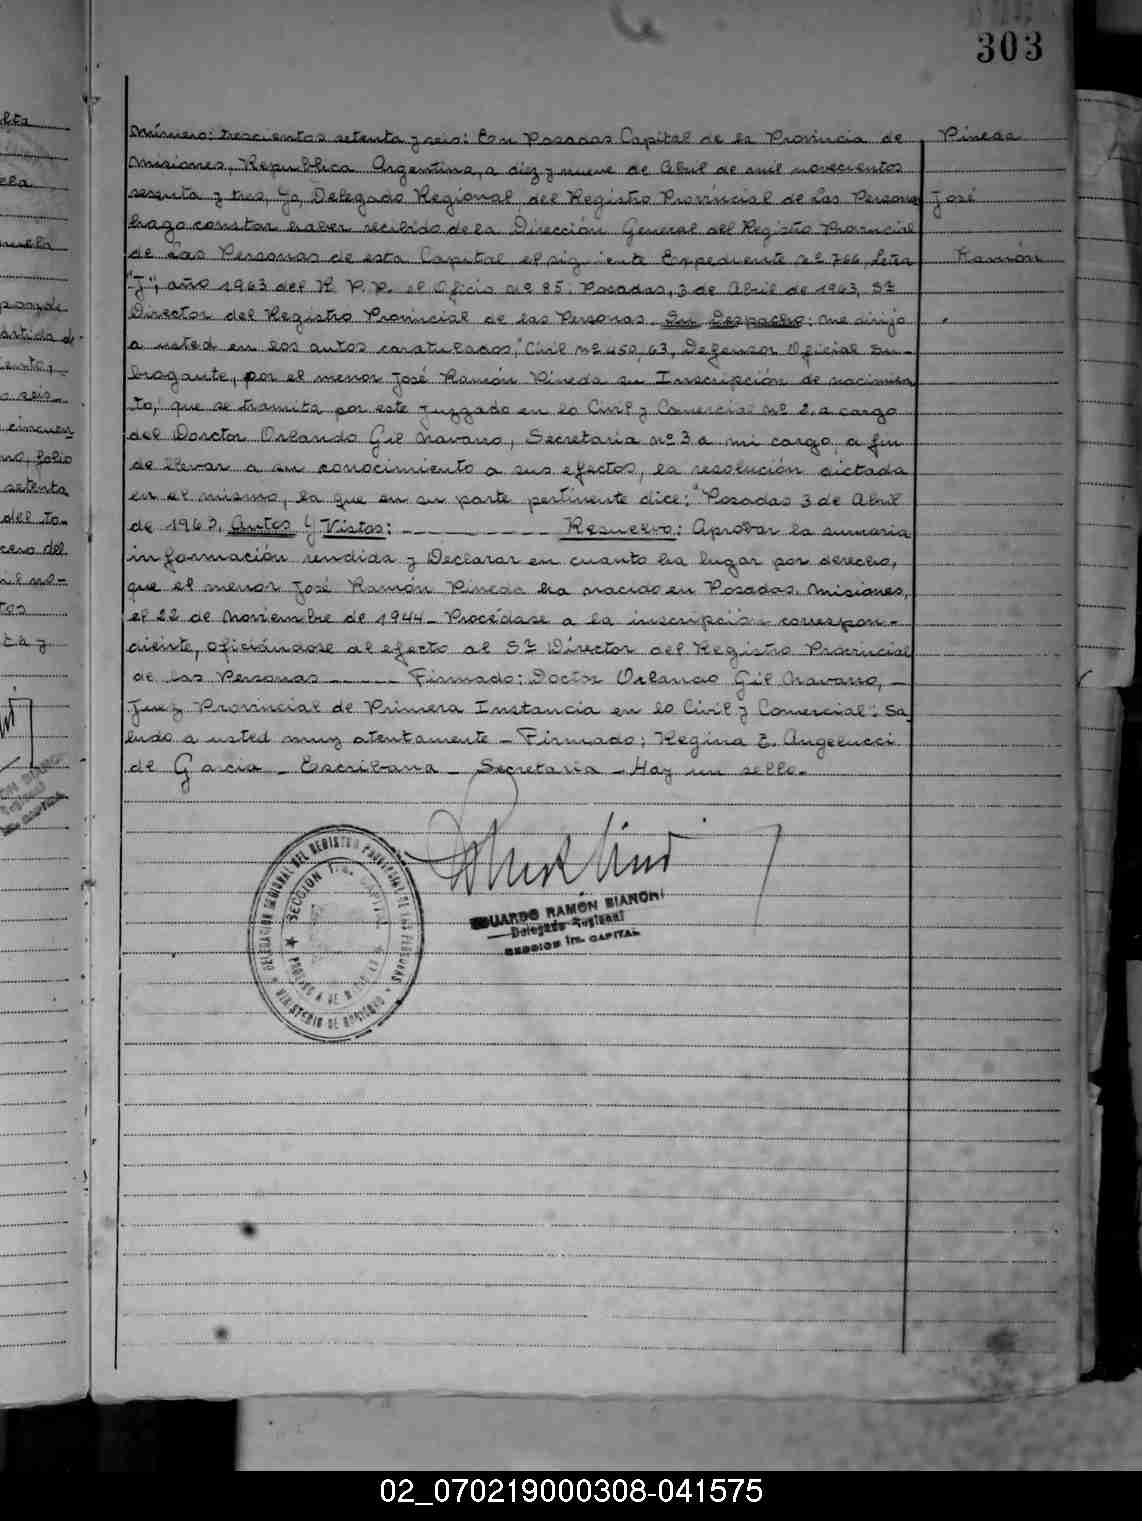 303
Número: trescientos setenta y seis: En Posadas Capital de la Provincia de
Misiones, Republica Argentina, a diez y nueve de Abril de mil novecientos
sesenta y tres, Yo, Delegado Regional del Registro Provincial de Las Personas
hago constar haber recibido de la Dirección General del Registro Provincial
de Las Personas de esta Capital el siguiente Expediente nº 766, letra
"J", año 1963 del R. P. P. el Oficio nº 85: Posadas, 3 de Abril de 1963, Sr
Director del Registro Provincial de las Personas. Su Despacho: me dirijo
a usted en los autos caratulados, "Civil nº 450/63, Defensor Oficial Su-
brogante, por el menor José Ramón Pineda su Inscripción de nacimien
to," que se tramita por este Juzgado en lo Civil y Comercial nº 2, a cargo
del Doctor Orlando Gil Navarro, Secretaria nº 3 a mi cargo, a fin
de llevar a su conocimiento a sus efectos, la resolución dictada
en el mismo, la que en su parte pertinente dice: "Posadas 3 de Abril
de 1963. Autos y Vistos: _ _ _ _ _ _ Resuelvo: Aprobar la sumaria
información rendida y Declarar en cuanto ha lugar por derecho,
que el menor José Ramón Pineda ha nacido en Posadas, Misiones,
el 22 de Noviembre de 1944_ Procédase a la inscripción correspon-
diente, oficiándose al efecto al Sr Director del Registro Provincial
de las Personas _ _ _ _ Firmado: Doctor Orlando Gil Navarro, _
Juez Provincial de Primera Instancia en lo Civil y Comercial: Sa_
ludo a usted muy atentamente _ Firmado: Regina E. Angelucci
de Garcia _ Escribana _ Secretaria _ Hay un sello _
Pineda
José
Ramón
DELEGACION REGIONAL DEL REGISTRO PROVINCIAL DE LAS PERSONAS
SECCION 1ra. CAPITAL
MINISTERIO DE GOBIERNO
EDUARDO RAMÓN BIANCHI
Delegado Regional
SECCION 1ra. CAPITAL
02_070219000308-041575